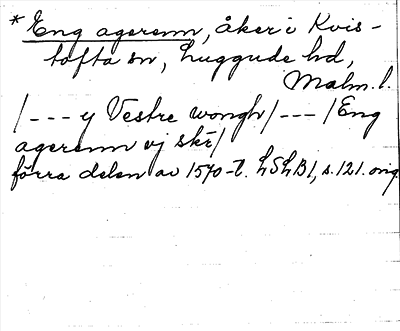 * Eng agerenn, åker i Kvis-
tofta sn, Luggude hd,
Malm. l.
/--- y Vestre wongh/---/Eng
agerenn vj skr/
förra delen av 1570-t. LSLB 1, s. 121. orig.